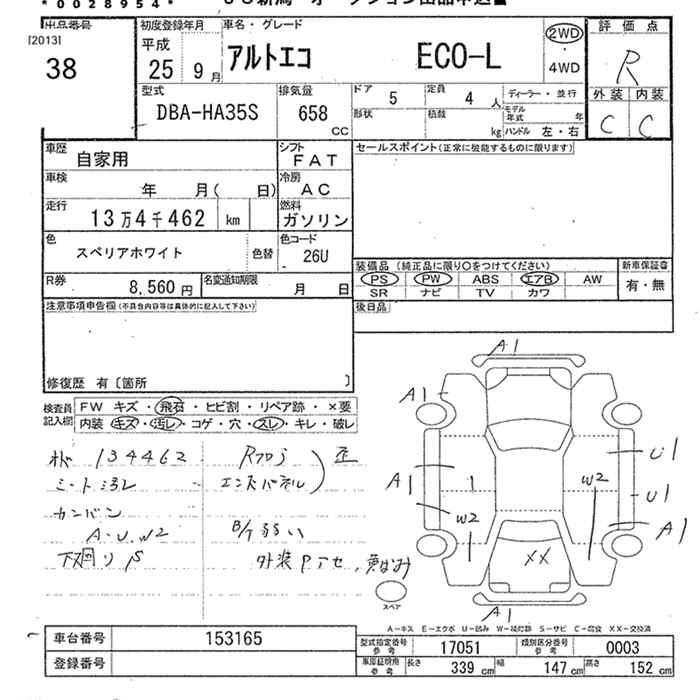 *0028954*
出品番号
[2013]
38
初度登録年月
平成
25年9月
車名・グレード
アルトエコ ECO-L
2WD
4WD
評価点
R
外装 内装
C C
型式
DBA-HA35S
排気量
658
CC
ドア
5
定員
4人
形状
積載
kg
ディーラー・並行
モデル年式
年
ハンドル 左・右
車歴
自家用
シフト
FAT
車検
年 月( 日)
冷房
AC
走行
13万4千462 km
燃料
ガソリン
色
スペリアホワイト
色替
色コード
26U
R券
8,560円
名変通知期限
月 日
セールスポイント(正常に機能するものに限ります)
装備品(純正品に限り○をつけてください)
PS PW ABS エアB AW
SR ナビ TV カワ
新車保証書
有・無
後日品
注意事項申告欄(不具合内容等は具体的に記入して下さい)
修復歴 有〔箇所 〕
検査員記入欄
FW キズ・飛石・ヒビ割・リペア跡・×要
内装 キズ・汚レ・コゲ・穴・スレ・キレ・破レ
134462
カンバン
A・U・W2
下回りS
Rフロア
エンドパネル
歪
B/T弱い
A1
A1
A1
W2
1
W2
U1
U1
A1
XX
A1
スペア
A-キズ E-エクボ U-凹み W-補修跡 S-サビ C-腐食 XX-交換済
車台番号
153165
登録番号
型式指定番号
参考
17051
類別区分番号
参考
0003
車庫証明用
参考
長さ
339cm
幅
147cm
高さ
152cm